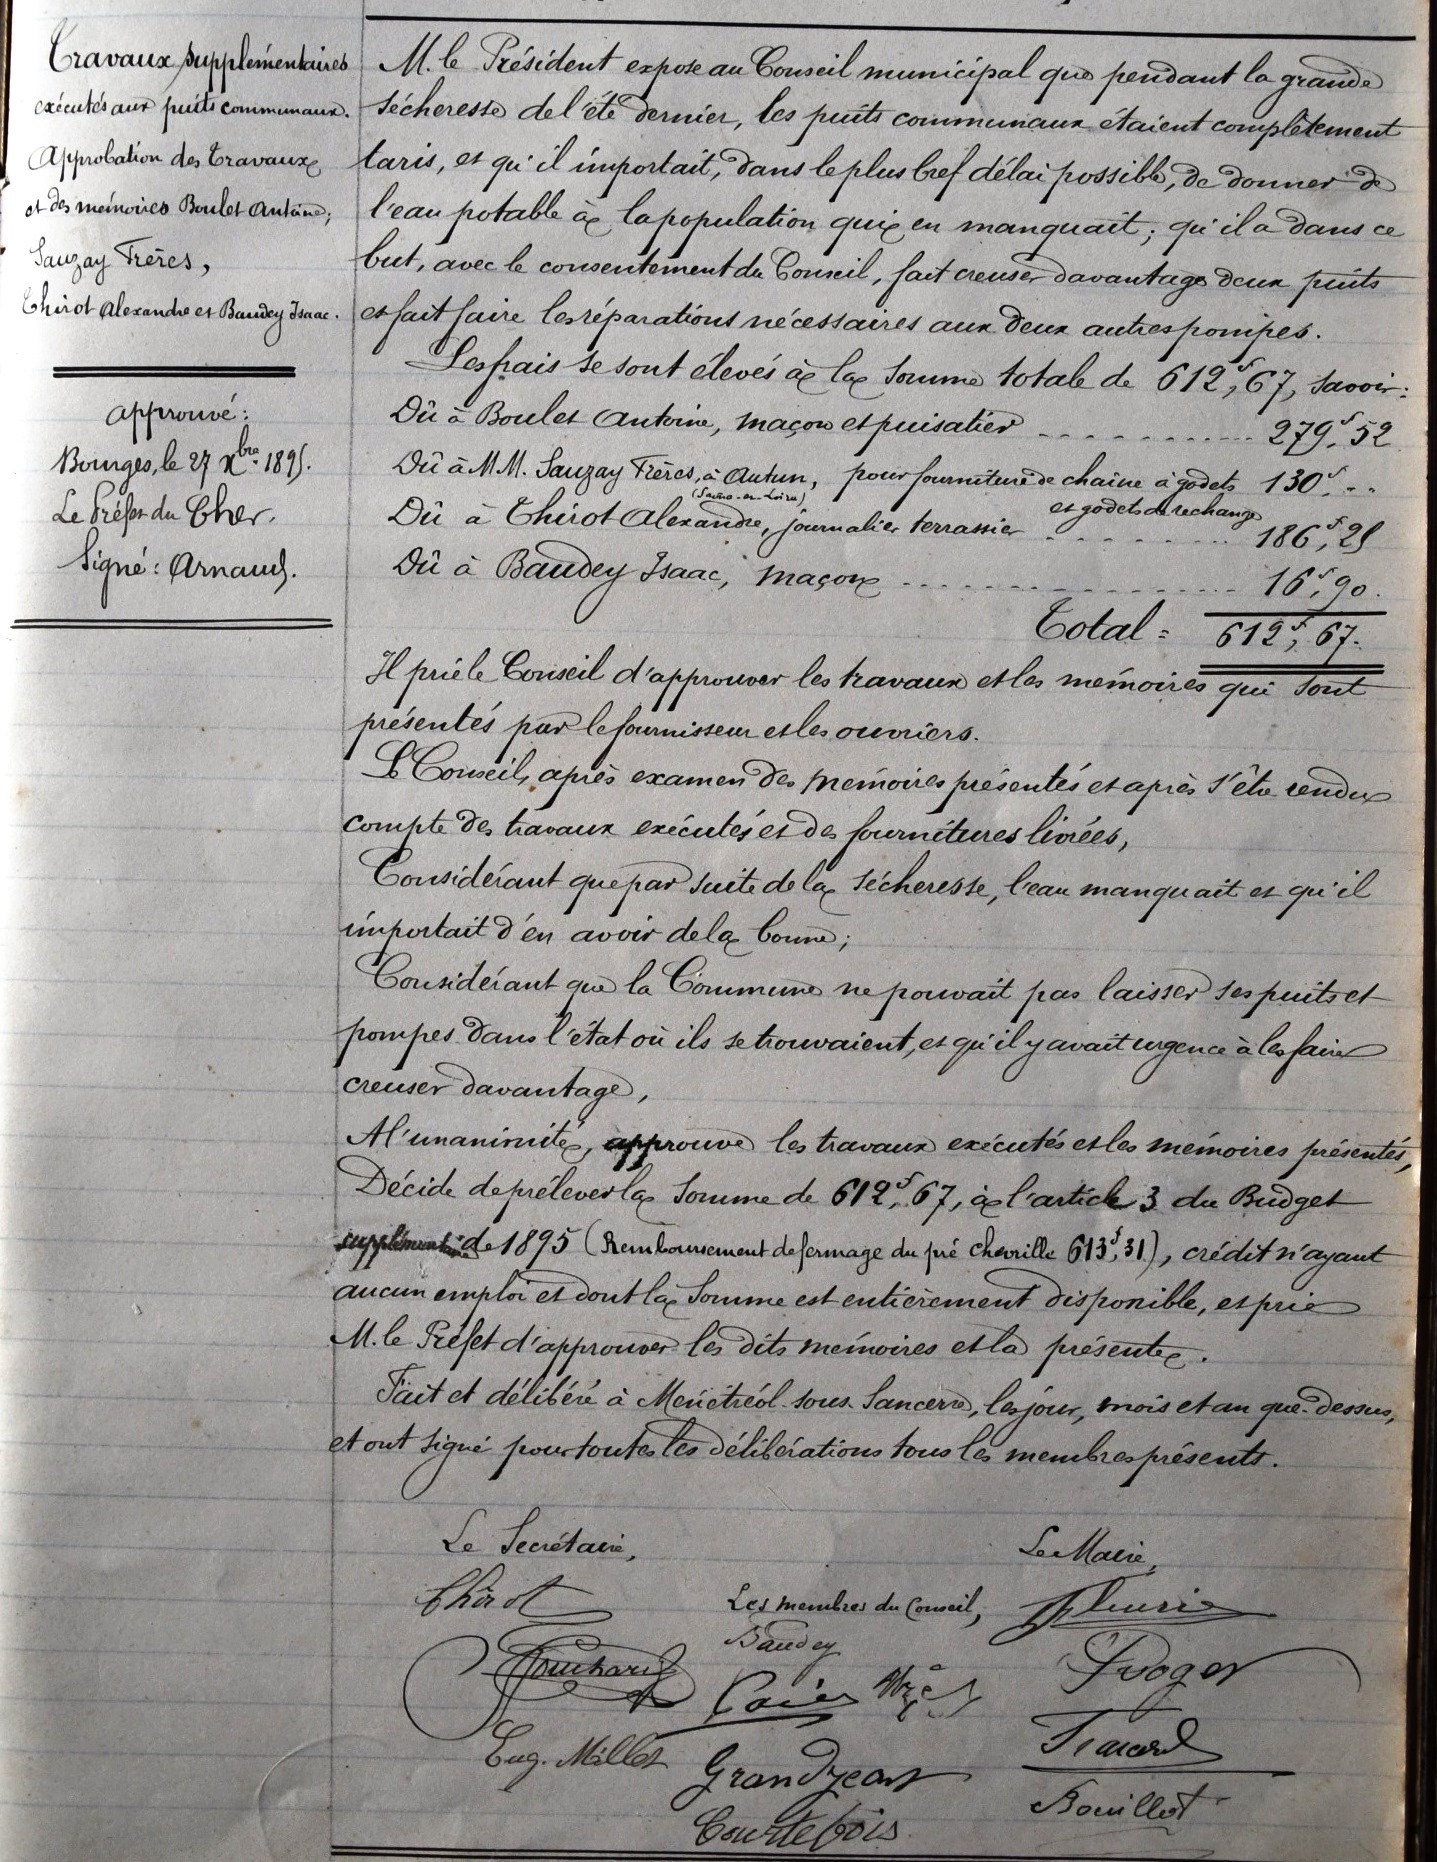 Travaux supplémentaires
exécutés aux puits communaux.
Approbation des travaux
et des mémoires Boulet Antoine;
Sauzay Frères,
Thirot Alexandre et Baudey Isaac.
approuvé:
Bourges, le 27 Xbre 1895.
Le Préfet du Cher.
Signé: Arnaud.
M. le Président expose au Conseil municipal que pendant la grande
sécheresse de l'été dernier, les puits communaux étaient complètement
taris, et qu'il importait, dans le plus bref délai possible, de donner de
l'eau potable à la population qui en manquait; qu'il a dans ce
but, avec le consentement du Conseil, fait creuser davantage deux puits
et fait faire les réparations nécessaires aux deux autres pompes.
Les frais se sont élevés à la somme totale de 612f,67, savoir:
Dû à Boulet Antoine, maçon et puisatier ........... 279f,52
Dû à MM. Sauzay Frères, à Autun, pour fourniture de chaîne à godets 130f,--
(Saône-et-Loire)
et godets de rechange
Dû à Thirot Alexandre, journalier terrassier ......... 186f,25
Dû à Baudey Isaac, maçon ................ 16f,90.
Total = 612f,67.
Il prie le Conseil d'approuver les travaux et les mémoires qui sont
présentés par le fournisseur et les ouvriers.
Le Conseil, après examen des mémoires présentés et après s'être rendu
compte des travaux exécutés et des fournitures livrées,
Considérant que par suite de la sécheresse, l'eau manquait et qu'il
importait d'en avoir de la bonne;
Considérant que la Commune ne pouvait pas laisser ses puits et
pompes dans l'état où ils se trouvaient, et qu'il y avait urgence à les faire
creuser davantage,
A l'unanimité, approuve les travaux exécutés et les mémoires présentés,
Décide de prélever la somme de 612f,67, à l'article 3 du Budget
supplémentaire de 1895 (Remboursement de fermage du pré 613f,31), crédit n'ayant
aucun emploi et dont la somme est entièrement disponible, et prie
M. le Préfet d'approuver les dits mémoires et la présente.
Fait et délibéré à Ménétréol-sous-Sancerre, les jour, mois et an que dessus,
et ont signé pour toutes les délibérations tous les membres présents.
Le Secrétaire,
Le Maire,
Thirot
Les membres du Conseil,
Fleurie
Baudey
Eug. Millet
Grandjean
Bouillot
Courtebois